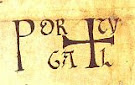 POR TU
GA L